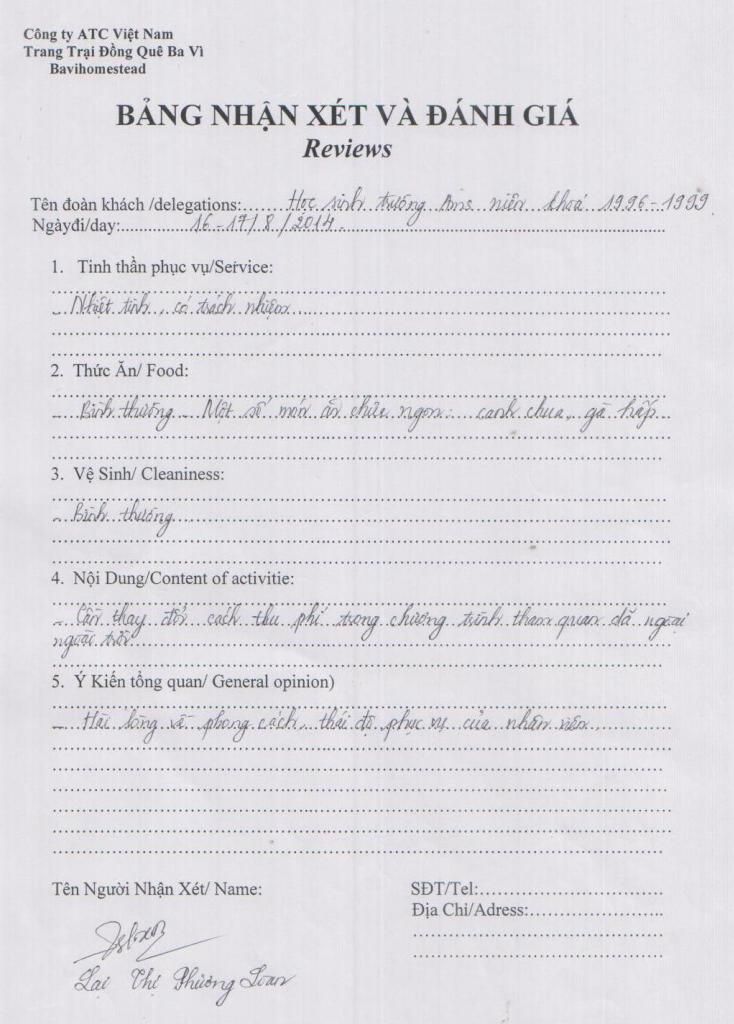 Công ty ATC Việt Nam
Trang Trại Đồng Quê Ba Vì
Bavihomestead
BẢNG NHẬN XÉT VÀ ĐÁNH GIÁ
Reviews
Tên đoàn khách /delegations:...... Học sinh trường Ams niên khoá 1996-1999
Ngàyđi/day:............. 16-17/8/2014.
1. Tinh thần phục vụ/Service:
- Nhiệt tình, có trách nhiệm
2. Thức Ăn/ Food:
- Bình thường - Một số món ăn chưa ngon: canh chua, gà hấp
3. Vệ Sinh/ Cleaniness:
- Bình thường
4. Nội Dung/Content of activitie:
- Cần thay đổi cách thu phí trong chương trình tham quan dã ngoại
ngoài trời
5. Ý Kiến tổng quan/ General opinion)
- Hài lòng về phong cách, thái độ phục vụ của nhân viên.
Tên Người Nhận Xét/ Name:
SĐT/Tel:..............................
Địa Chỉ/Adress:......................
Lại Thị Phương Loan